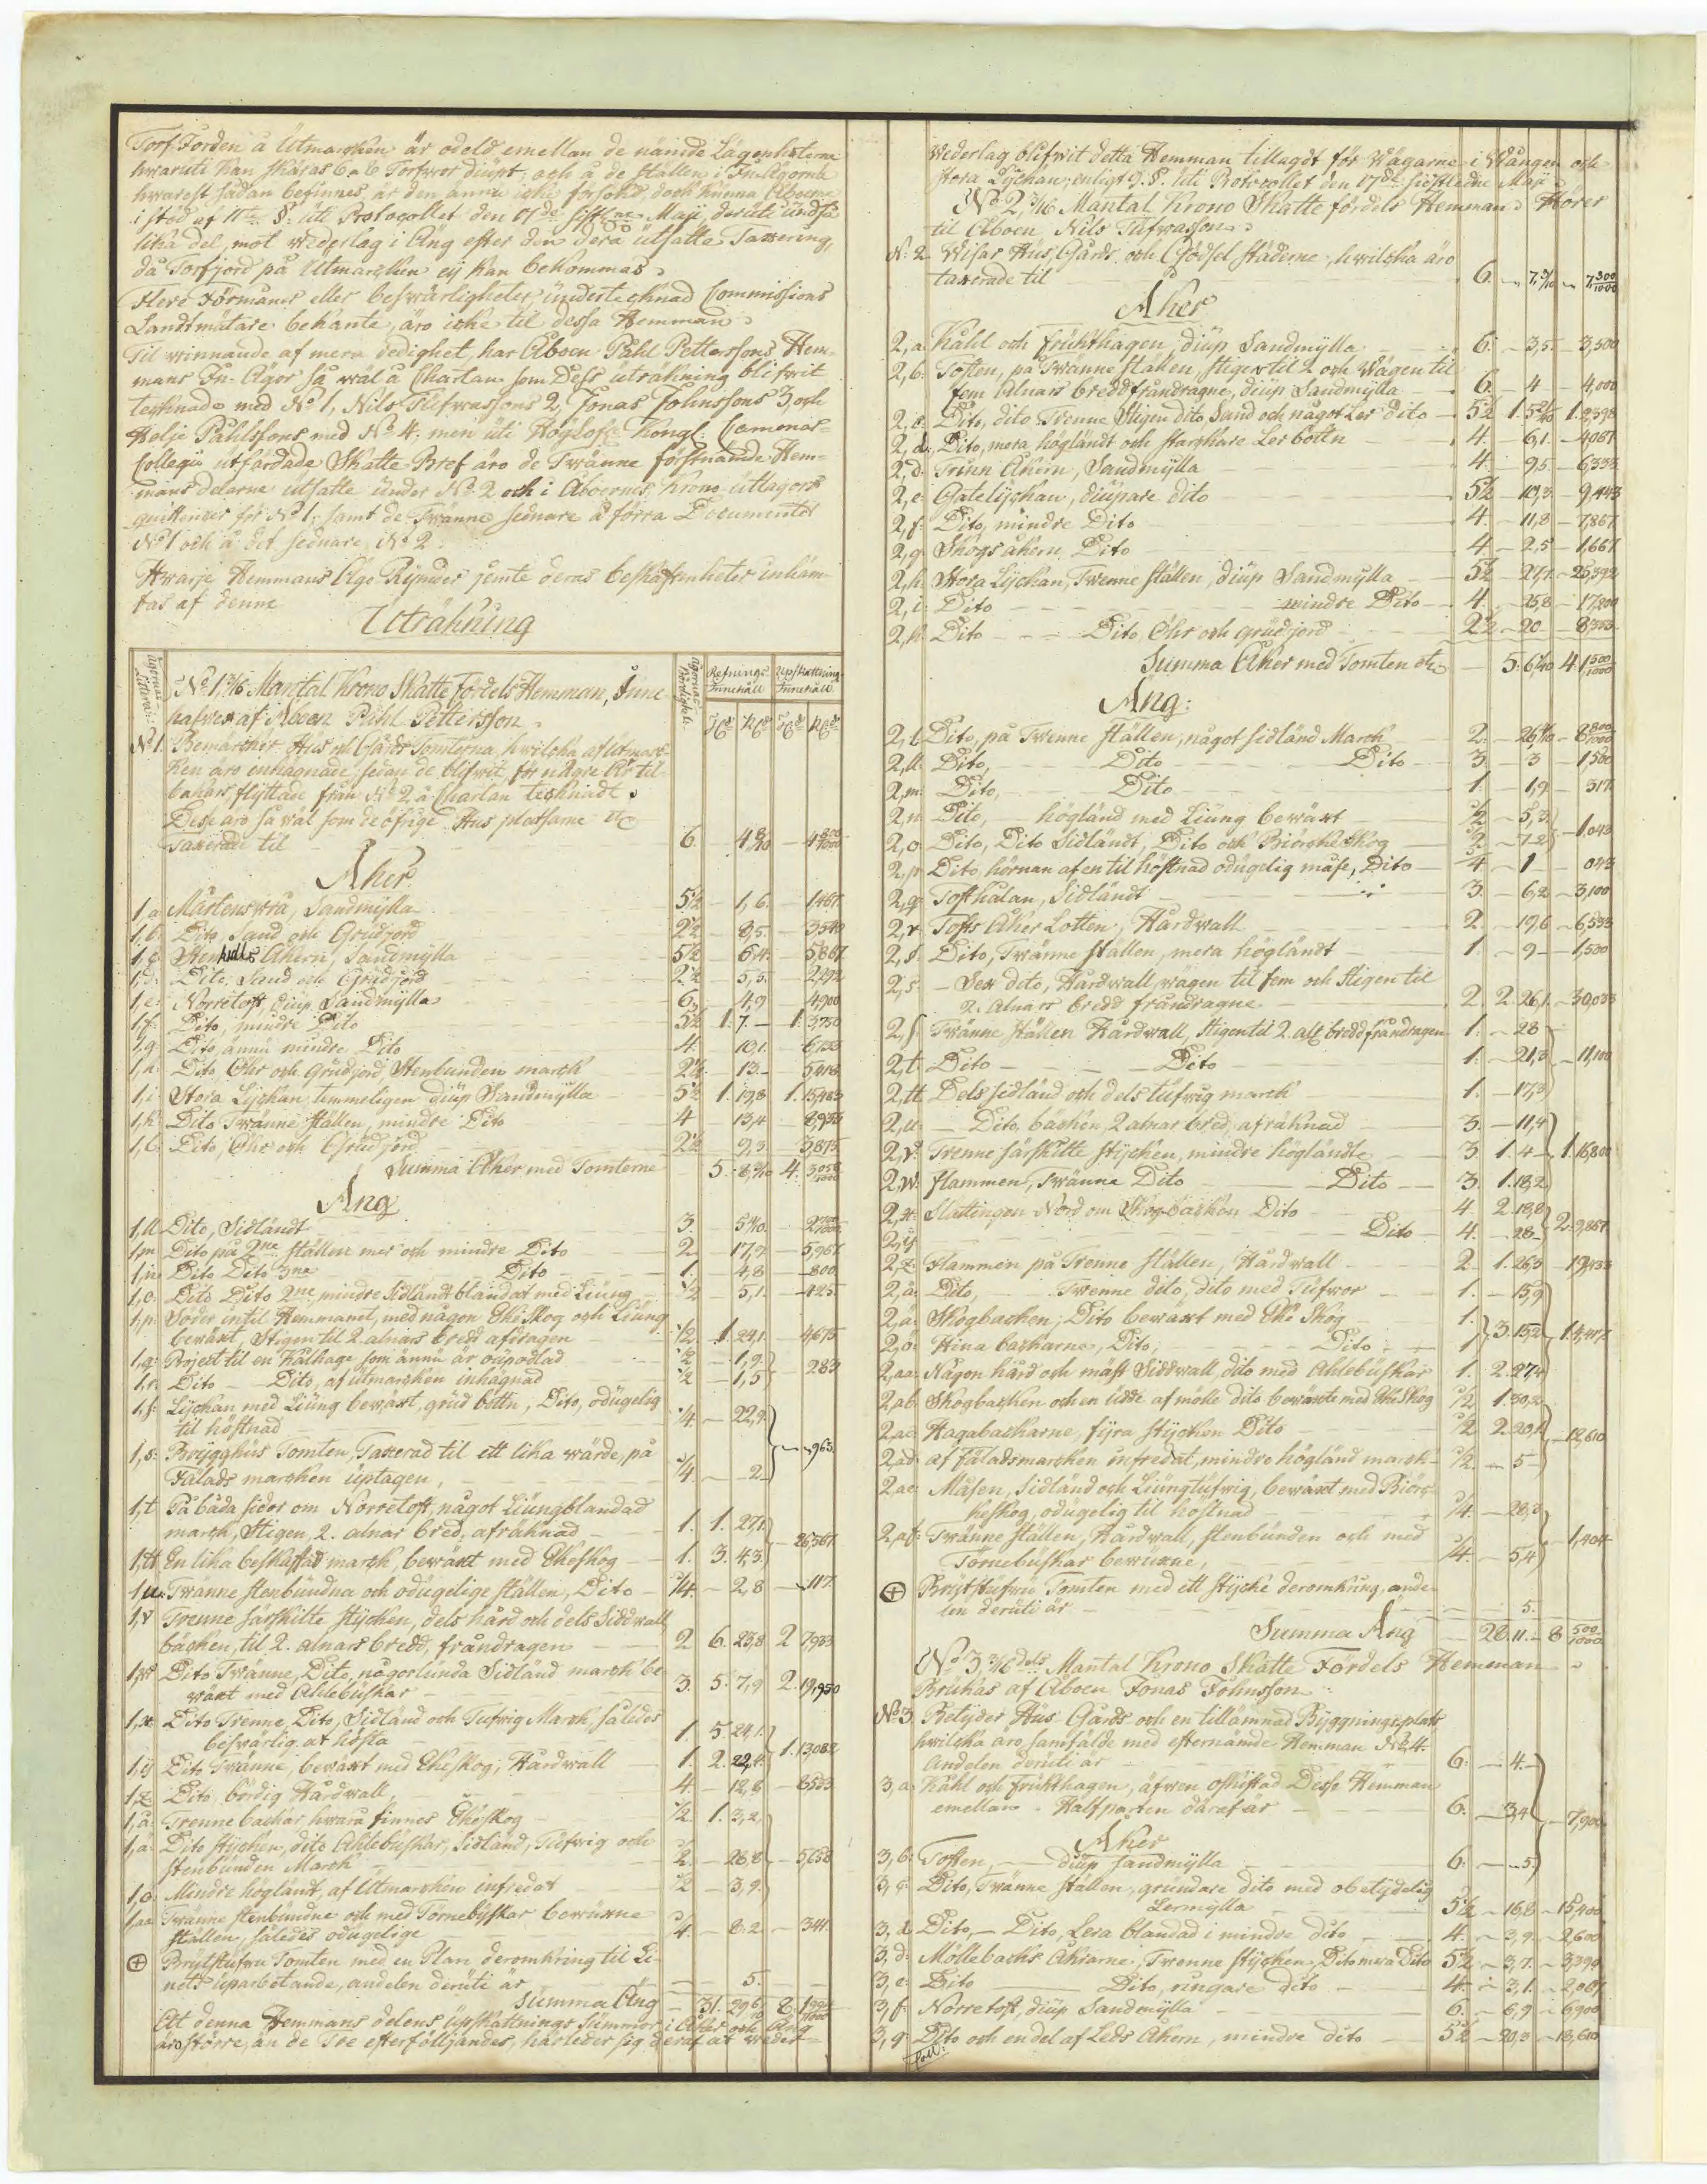 Torf Jorden å Utmarcken är odeld emellan de nämde Lägenheterne
hwaruti kan skäras 6 a 6 Torfwor diupt; och å de ställen i In-Ägorna
hwarest sådan befinnes, är den ännu icke försökt, doch kunna Åboerne
i stöd af 11te §: uti Protocollet den 17de sistl:ne Maji, deruti undfå
lika del, mot wederlag i Äng efter den dera utsatte Taxering,
då Torfjord på Utmarcken ej kan bekommas.
Flere Förmåner eller beswärligheter, undertecknad Commissions
Landtmätare bekante, äro icke til dessa Hemman.
Til winnande af mera redighet, har Åboen Påhl Pettersons Hem-
mans In-Ägor så wäl å Chartan som Dess uträkning blifwit
tecknade med No 1, Nils Tufwassons 2, Jonas Johnssons 3, och
Holje Påhlssons med No 4, men uti Höglofl: Kongl: Camerar-
Collegii utfärdade Skatte-Bref äro de Twänne förstnämde Hem-
mans delarne utsatte under No 2 och i Åboernes, krono utlagors
quittencer för No 1, samt de Twänne sednare å förra Documentet
No 1 och å det sednare No 2.
Hwarje Hemmans Ägo Rymder jemte deras beskaffenheter inhäm-
tas af denne
Uträkning
Ägornas Litterai:
No 1 3/16 Mantal Krono Skatte Fördels Hemman, Inne-
hafwes af Åboen Påhl Pettersson.
Refnings Innehåll
Upskattning Innehåll
No 1. Bemärcker Hus och Gårds Tomterna hwilcka af Utmarc-
ken äro inhägnade, sedan de blifwit för någre År til-
bakars flyttade från No 2, å Chartan tecknadt.
Desse äro så wäl som de öfrige Hus platsarne etc
Taxerade til 6. 4 8/10 4 800/1000
Åker
1,a Mårtenswra, Sandmylla 5½ 1,6. 1467
1,b. Dito, Sand och Grusjord 2½ 8,5. 3540
1,c Åkern, Sandmylla 5½ 6,4. 5,867
1,d: Dito, Sand och Grusjord 2½ 5,5. 2,292
1,e: Norretoft, diup Sandmylla 6. 4,9 4,900
1,f: Dito, mindre Dito 5½ 1. 7. 1. 3,750
1,g: Dito, ännu mindre Dito 4 10,1.
1,h: Dito, Öhr och Grusjord Stenbunden marck 2½ 13.
1,i: Stora Lyckan, temmeligen diup Sandmylla 5½ 1. 19,8 1. 15,483
1,k: Dito Twänne ställen, mindre Dito 4 13,4 8,933
1,l: Dito, Öhr och Grusjord 2½ 9,3 3,875
Summa Åker med Tomterne 5. 8,7/10 4.
Äng
1,ll Dito, Sidländt 3. 5 4/10. 2 700/1000
1,m Dito på 2ne ställen mer och mindre Dito 2 17,9 5,967
1,n Dito Dito 3ne Dito 1. 4,8 800
1,o. Dito Dito 2ne, mindre Sidländt blandat med Liung ½ 5,1. 425
1,p: Söder intil Hemmanet, med någon Ekeskog och Liung
bewäxt, Stigen til 2 alnars bredd afdragen ½ 1. 24,1. 4,675
1,q: Projecttil en Kålhage som ännu är ouppodlad ½ 1,9.
1,r. Dito Dito, af utmarcken inhägnad ½ 1,5 283
1,s: Lyckan med Liung bewäxt, grus bottn, Dito, odugelig
til höstnad ¼ 22,9.
1,s: Brygghus Tomten, Taxerad til ett lika wärde, på
Fälads marcken uptagen, ¼ 2 963
1,t På båda sidor om Norretoft, något Liungblandad
marck, Stigen, 2. alnar bred, afräknad 1. 1. 27,1.
1,tt En lika beskaffad marck, bewäxt med Ekeskog 1. 3. 4,3. 26,567
1,u: Twänne stenbundna och odugelige ställen, Dito ¼ 2,8 117
1,v Trenne särskilte stycken, dels hård och dels Sidwall
bäcken, til 2. alnars bredd, fråndragen 2 6. 23,8 2 7,933
1,w Dito Twänne, Dito, någorlunda Sidländ marck be-
wäxt med Ahlebuskar 3. 5. 7,9 2. 19,950
1,x: Dito Trenne Dito, Sidländ och Tufwig Marck, således
beswärlig at hösta 1. 5. 24,1.
1,y Dito Twänne, bewäxt med Ekeskog, Hårdwall 1. 2. 22,4. 1. 13,082
1,z Dito, bördig Hårdwall, 4. 12,8 8533
1,å: Trenne backar hwara finnes Ekeskog ½ 1. 3,2.
1,ä: Dito stycken, dito Ahlebuskar, Sidländ, Tufwig och
stenbunden Marck ½ 28,8 5,658
1,ö Mindre högländt, af Utmarcken infredat ½ 3,9.
1,aa Twänne stenbundne och med Törnebuskar bewuxne
ställen, således odugelige ¼. 8,2 341.
⊕ Brytstufwu Tomten med en Plan deromkring til Li-
nets uparbetande, andelen deruti är 5.
Summa Äng 31. 29,6. 8.
Att denna Hemmans delens upskattnings Summor i Åker och Äng
äro större, än de Tre efterföljandes, härleder sig deraf at weder-
Wederlag blifwit detta Hemman tillagdt för Wägarne i Wången och
Stora Lyckan, enligt 9. §. Uti Protocollet den 17de sistledne Maji.
No 2, 3/16 Mantal Krono Skatte fördels Hemman. Hörer
til Åboen Nils Tufwasson.
No: 2 Wisar Hus, Gårds och Gödsel städerne, hwilcka äro
taxerade til 6. 7,3/10 7,300/1000
Åker
2,a. Kåhl och Frukthagen, diup Sandmylla 6. 3,5. 3,500
2,b. Toften, på Twänne ställen, stigen til 2 och Wägen til
fem Alnars bredd fråndragne, diup Sandmylla 6 4 4,000
2,c. Dito, dito Trenne Stigen dito, Sand och något Ler dito 5½ 1.
2,d: Dito, mera högländt och starckare Ler bottn 4. 6,1. 4067
2,d: Trinn Åkern, Sandmylla 4. 9,5. 6,333
2,e Gatelyckan, diupare dito 5½ 10,3. 9,443
2,f: Dito, mindre Dito 4. 11,8 7,867
2,g Skogs åkern, Dito 4 2,5 1,667
2,h Stora Lyckan, Twenne ställen, diup Sandmylla 5½ 27,7. 25,392
2,i: Dito mindre Dito 4. 25,8 17,200
2,k: Dito Dito Öhr och grusjord 2½ 20 8333
Summa Åker med Tomten etc 5. 6,4/10 4. 1 500/1000
Äng:
2,l. Dito, på Twenne ställen, något sidländ Marck 2. 26,4/10 8 800/1000
2,ll. Dito, Dito Dito 3 3 1500
2,m: Dito, Dito 1. 1,9 317
2,n Dito, högländ med Liung bewäxt ½ 5,3
2,o Dito, Dito Sidländt, Dito och Biörcke Skog ½ 7,2 1,043
2,p Dito, hörnan af en til höstnad odugelig måse, Dito ¼ 1 043
2,q: Tofthålan, Sidländt 3. 6,2 3,100
2,r Tofts Åker Lotten, Hårdwall 2 19,6 6,533
2,s. Dito, Twänne ställen, mera högländt 1. 9 1,500
2,s: Sex dito, Hårdwall, wägen til fem och Stigen til
2. Alnars bredd fråndragne 2 2. 26,1. 30,033
2,ſ. Twänne Ställen Hårdwall, Stigen til 2. alr: bredd fråndragen 1. 28
2,t: Dito Dito 1. 21,3 11,100
2,tt Dels sidländ och dels tufwig marck 1. 17,3
2,u Dito, bäcken, 2 alnar bred, afräknad 3. 11,4
2,v: Trenne särskilte stycken, mindre högländte 3 1. 4 1. 16,800
2,w. Flammen, Twänne Dito Dito 3. 1. 18,2
2,x: Slättingen Nord om Skogbäcken Dito 4. 2. 18,8
2,y Dito 4. 28 2. 9,867
2,z: Flammen på Trenne ställen, Hårdwall 2 1. 26,3 19,433
2,å: Dito, Twenne dito, dito med Tufwor 1. 15,9
2,ä: Skogbacken, Dito bewäxt med Eke Skog 1.
2,ö: Hina backarne, Dito, Dito 1 3. 15,2
2,aa: Någon hård och mäst Sidwall, dito med Ahlebuskar 1. 2. 27,4
2,ab Skogbacken och en udde af mölle dito bewäxte med Ekeskog ½ 1. 30,2
2,ac Hagabackarne, fyra stycken Dito ½ 2. 20,1 12,610
2,ad: af Fäladsmarcken infredat, mindre högländ marck ½ 5
2,ae Måsen, Sidländ och Liungtufwig, bewäxt med Biörc-
keskog, odugelig til höstnad ¼ 28,3
2,af: Twänne ställen, Hårdwall, stenbunden och med
Törnebuskar bewuxne, ¼ 5,4 1,404
⊕ Brytstufwu Tomten med ett stycke deromkring, ande-
len deruti är 5.
Summa Äng 28. 11. 8 500/1000
No 3, 3/16 dels Mantal Krono Skatte Fördels Hemman
Brukas af Åboen Jonas Johnsson.
No 3 Betyder Hus Gårds och en tillämnad Byggningsplats
hwilcka äro samfälde med efternämde Hemman No 4.
Andelen deruti är 6. 4.
3,a: Kåhl och Frukthagen, äfwen oskiftad Desse Hemman
emellan. Halfparten däraf är 6. 3,4 7,900
Åker
3,b: Toften, diup sandmylla 6. 5.
3,c: Dito, Twänne ställen, grundare dito med obetydelig
Lermylla 5½ 16,8 15,400
3,d: Dito, Dito, Lera blandad i mindre dito 4. 3,9. 2,600
3,d: Möllebacks Åkrarne, Trenne stycken, Dito mera Dito 5½ 3,7. 3,390
3,e: Dito Dito, ringare dito 4. 3,1. 2,067
3,f: Norretoft, diup Sandmylla 6. 6,9 6900
3,g: Dito och en del af Leds Åkern, mindre dito 5½ 20,3 18,610